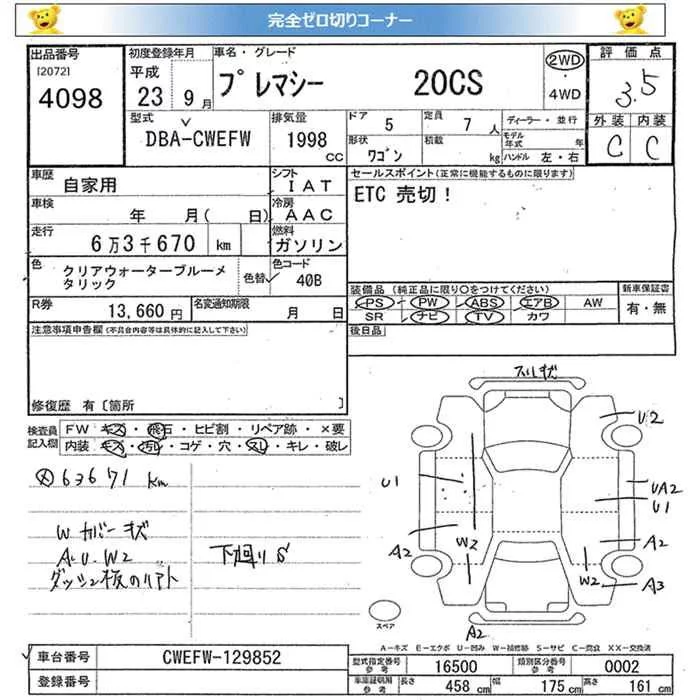 完全ゼロ切りコーナー
出品番号
[2072]
4098
初度登録年月
平成
23 9月
車名・グレード
プレマシー 20CS
2WD
・
4WD
評価点
3.5
外装 内装
C C
型式
DBA-CWEFW
排気量
1998
cc
ドア
5
定員
7 人
形状
ワゴン
積載
kg
ディーラー・並行
モデル
年式 年
ハンドル 左・右
車歴
自家用
シフト
IAT
車検
年 月( 日)
冷房
AAC
走行
6万3千670 km
燃料
ガソリン
色
クリアウォーターブルーメ
タリック
色替
色コード
40B
R券
13,660円
名変通知期限
月 日
セールスポイント(正常に機能するものに限ります)
ETC 売切!
装備品(純正品に限り○をつけてください)
PS PW ABS エアB AW
SR ナビ TV カワ
新車保証書
有・無
後日品
注意事項申告欄(不具合内容等は具体的に記入して下さい)
修復歴 有[箇所 ]
検査員
記入欄
FW キズ・飛石・ヒビ割・リペア跡・×要
内装 キズ・汚れ・コゲ・穴・スレ・キレ・破レ
63671 km
W カバーキズ
A.U.W2
ダッシュ板のリアト
下廻りS
スリキズ
U2
U1
UA2
U1
A2
W2
A2
W2
A3
A2
スペア
A-キズ E-エクボ U-凹み W-補修跡 S-サビ C-腐食 XX-交換済
車台番号
CWEFW-129852
登録番号
型式指定番号
参考
16500
類別区分番号
参考
0002
車庫証明用
参考
長さ 458 cm 幅 175 cm 高さ 161 cm